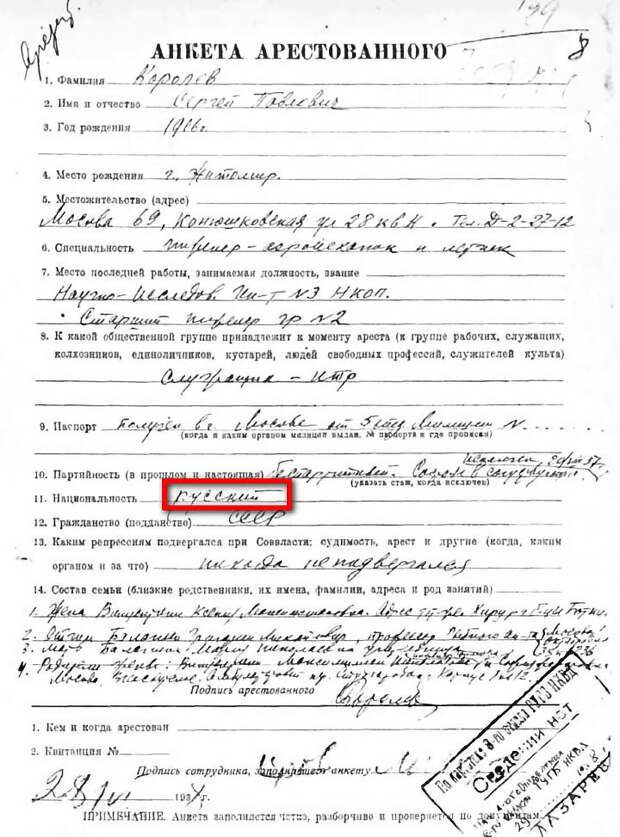 8
АНКЕТА АРЕСТОВАННОГО
1. Фамилия Королев
2. Имя и отчество Сергей Павлович
3. Год рождения 1906г.
4. Место рождения г. Житомир.
5. Местожительство (адрес)
Москва 69, Конюшковская ул 28 кв 11. Тел. Д-2-27-12
6. Специальность инженер-аэромеханик и летчик
7. Место последней работы, занимаемая должность, звание
Научно-Исследов. Ин-т №3 НКОП.
Старший инженер гр №2
8. К какой общественной группе принадлежит к моменту ареста (к группе рабочих, служащих,
колхозников, единоличников, кустарей, людей свободных профессий, служителей культа)
Служащих - ИТР
9. Паспорт получен в г. Москве от отд Милиции №
(когда и каким органом милиции выдан, № паспорта и где прописан)
10. Партийность (в прошлом и настоящая) Беспартийный.
(указать стаж, когда исключен)
11. Национальность русский
12. Гражданство (подданство) СССР
13. Каким репрессиям подвергался при Соввласти: судимость, арест и другие (когда, каким
органом и за что) никогда не подвергался
14. Состав семьи (близкие родственники, их имена, фамилии, адреса и род занятий)
1. Жена Ксения Максимилиановна. Адрес тот же. Хирург б-цы Боткин.
2. Отчим Баланин Григорий Михайлович, профессор
3. Мать Баланина Мария Николаевна
4. Родители жены: Максимилиан и София
Москва
Подпись арестованного
Королев
1. Кем и когда арестован
2. Квитанция №
Подпись сотрудника, заполнившего анкету
28 1938г.
Сведений нет
ЛАЗАРЕВ
ПРИМЕЧАНИЕ. Анкета заполняется четко, разборчиво и проверяется по документам.